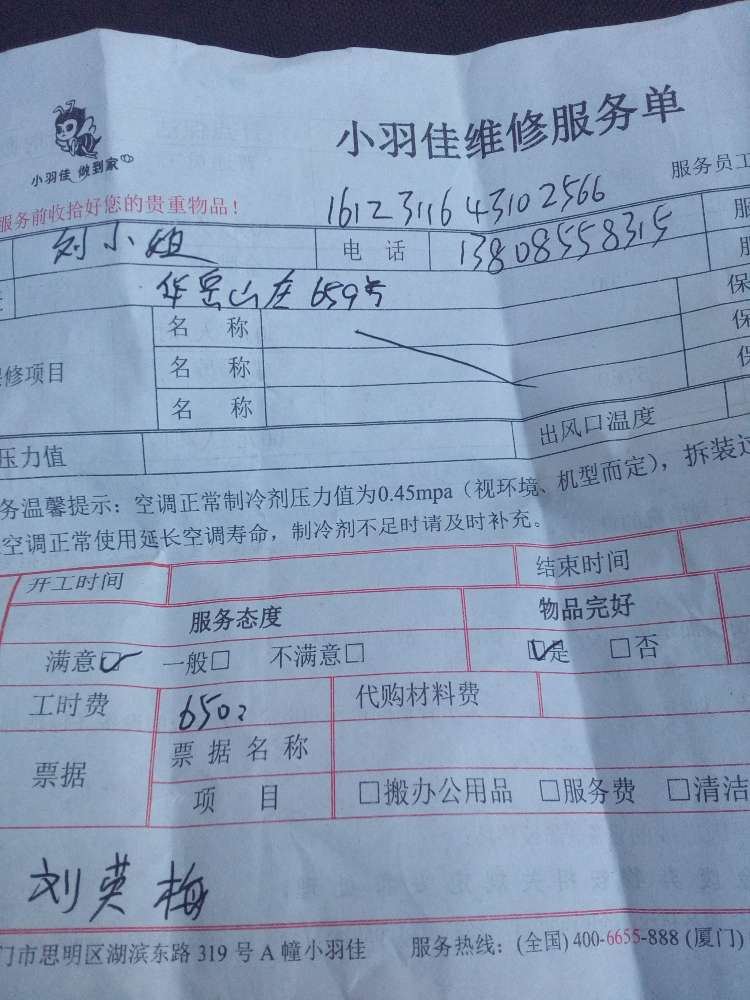 小羽佳维修服务单
小羽佳 做到家
服务员工
服务前收拾好您的贵重物品！
1612311643102566
刘小姐 电 话 13808558315 服
华岩山庄 659号
保
名 称 保
修项目 名 称 保
名 称
压力值 出风口温度
务温馨提示：空调正常制冷剂压力值为0.45mpa（视环境、机型而定），拆装过
空调正常使用延长空调寿命，制冷剂不足时请及时补充。
开工时间 结束时间
服务态度 物品完好
满意☑ 一般□ 不满意□ ☑是 □否
工时费 650 代购材料费
票据 票 据 名 称
项 目 □搬办公用品 □服务费 □清洁
刘英梅
门市思明区湖滨东路 319 号 A 幢小羽佳 服务热线：(全国) 400-6655-888 (厦门)